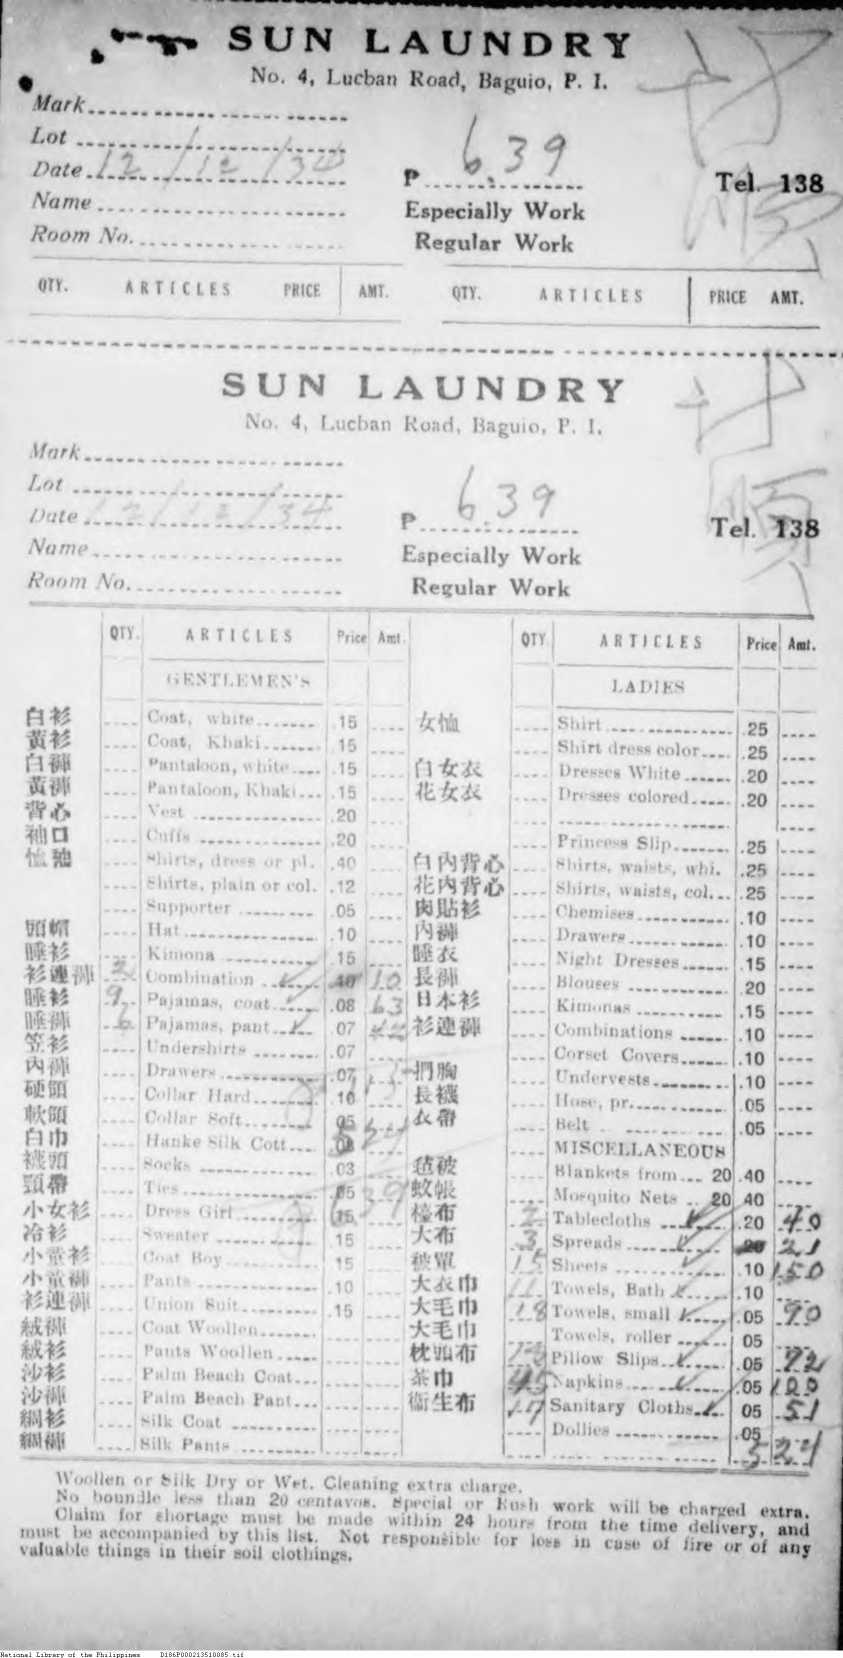 SUN LAUNDRY
No. 4, Lucban Road, Baguio, P. I.
Mark
Lot
Date 12/12/34
₱ 6.39
Tel. 138
Name
Especially Work
Room No.
Regular Work
QTY. ARTICLES PRICE AMT. QTY. ARTICLES PRICE AMT.
SUN LAUNDRY
No. 4, Lucban Road, Baguio, P. I.
Mark
Lot
Date 12/12/34
₱ 6.39
Tel. 138
Name
Especially Work
Room No.
Regular Work
QTY. ARTICLES Price Amt. QTY ARTICLES Price Amt.
GENTLEMEN'S LADIES
白衫 Coat, white .15 女恤 Shirt .25
黃衫 Coat, Khaki .15 Shirt dress color .25
白褲 Pantaloon, white .15 白女衣 Dresses White .20
黃褲 Pantaloon, Khaki .15 花女衣 Dresses colored .20
背心 Vest .20
袖口 Cuffs .20 Princess Slip .25
恤 Shirts, dress or pl. .40 白內背心 Shirts, waists, whi. .25
Shirts, plain or col. .12 花內背心 Shirts, waists, col. .25
Supporter .05 肉貼衫 Chemises .10
頭帽 Hat .10 內褲 Drawers .10
睡衫 Kimona .15 睡衣 Night Dresses .15
衫連褲 Combination 10 長褲 Blouses .20
睡衫 9 Pajamas, coat .08 63 日本衫 Kimonas .15
睡褲 6 Pajamas, pant .07 42 衫連褲 Combinations .10
笠衫 Undershirts .07 Corset Covers .10
內褲 Drawers .07 捫胸 Undervests .10
硬頭 Collar Hard .10 長襪 Hose, pr. .05
軟頭 Collar Soft .05 衣帶 Belt .05
白巾 Hanke Silk Cott MISCELLANEOUS
襪頭 Socks .03 毡被 Blankets from 20 .40
頸帶 Ties .05 蚊帳 Mosquito Nets 20 40
小女衫 Dress Girl .15 檯布 2 Tablecloths .20 40
冷衫 Sweater .15 大布 3 Spreads 21
小童衫 Coat Boy 15 被單 15 Sheets .10 150
小童褲 Pants .10 大衣巾 11 Towels, Bath .10
衫連褲 Union Suit .15 大毛巾 18 Towels, small .05 90
絨褲 Coat Woollen 大毛巾 Towels, roller 05
絨衫 Pants Woollen 枕頭布 Pillow Slips .05 72
沙衫 Palm Beach Coat 茶巾 45 Napkins .05
沙褲 Palm Beach Pant 衛生布 17 Sanitary Cloths 05 51
綢衫 Silk Coat Dollies .05
綢褲 Silk Pants 524
Woollen or Silk Dry or Wet. Cleaning extra charge.
No boundle less than 20 centavos. Special or Rush work will be charged extra.
Claim for shortage must be made within 24 hours from the time delivery, and
must be accompanied by this list. Not responsible for loss in case of fire or of any
valuable things in their soil clothings.
National Library of the Philippines D186P000213510085.tif